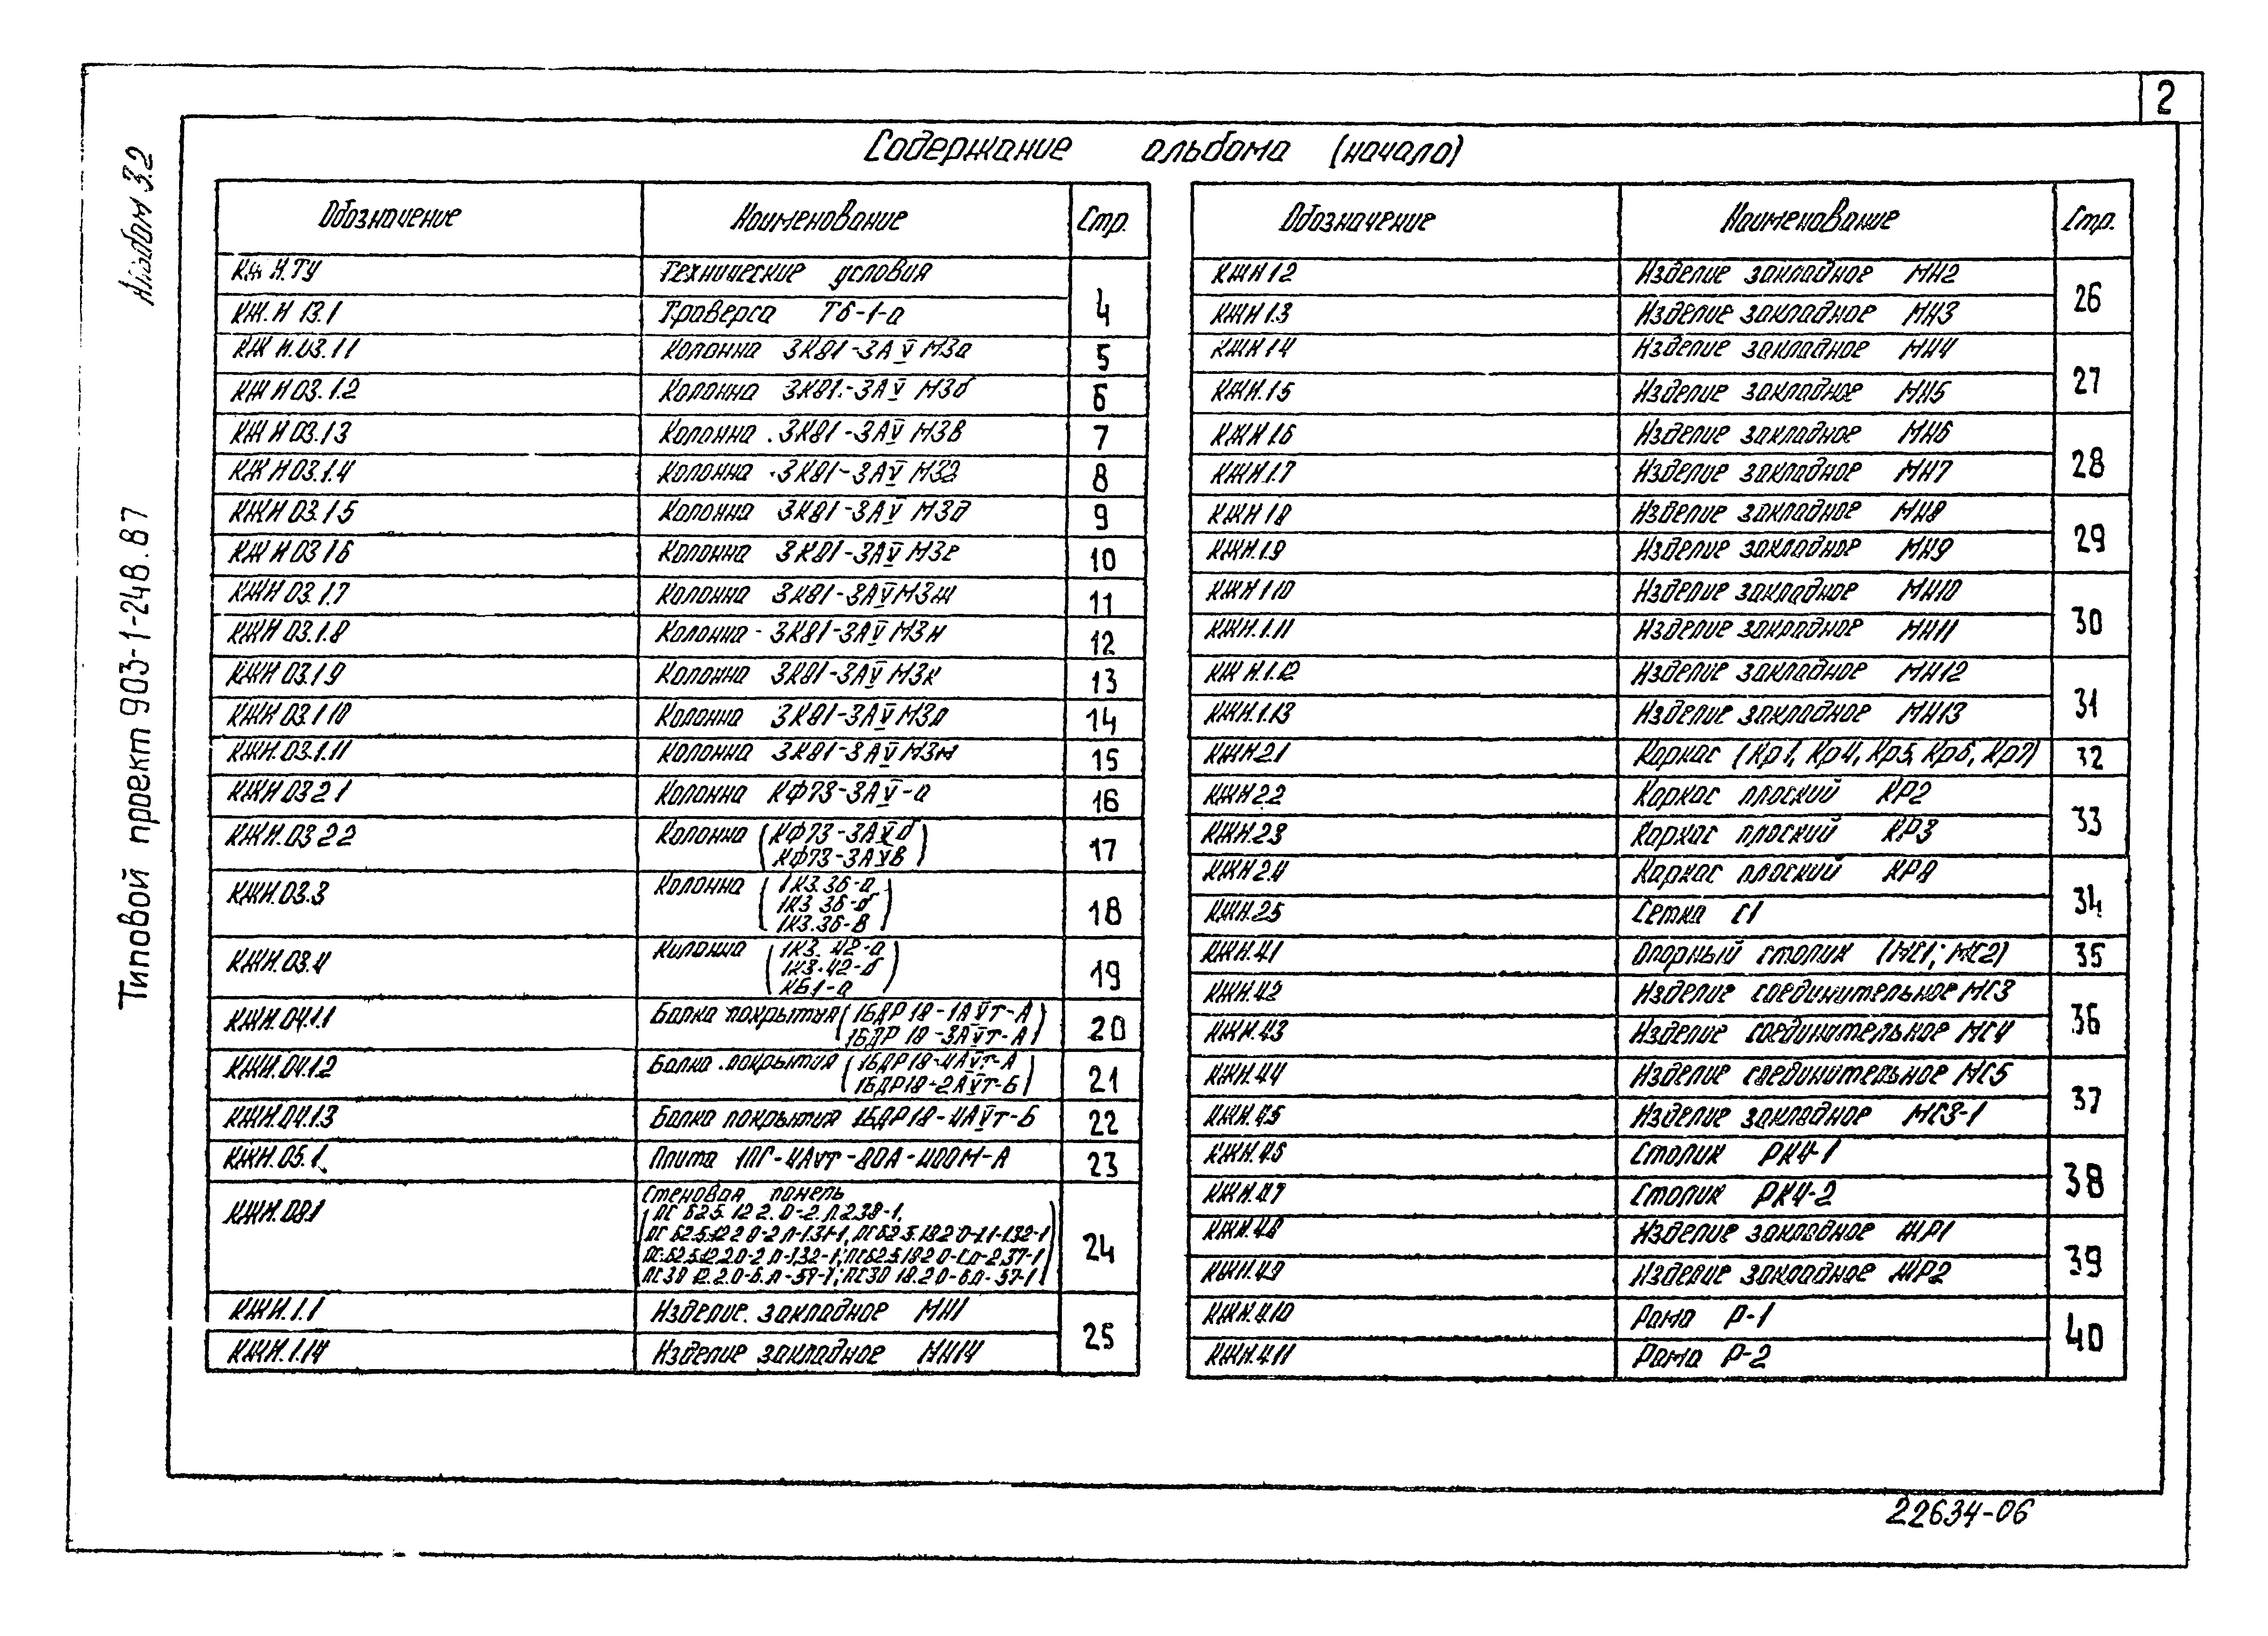 2
Альбом 3.2
Типовой проект 903-1-248.87
Содержание альбома (начало)
Обозначение Наименование Стр.
КЖ.И.ТУ Технические условия
КЖ.И 13.1 Траверса Т6-1-а 4
КЖ И.03.1.1 Колонна 3К81-3АV М3а 5
КЖ И 03.1.2 Колонна 3К81-3АV М3б 6
КЖ И 03.1.3 Колонна 3К81-3АV М3в 7
КЖ И 03.1.4 Колонна 3К81-3АV М3г 8
КЖИ 03.1.5 Колонна 3К81-3АV М3д 9
КЖ И 03 1 6 Колонна 3К81-3АV М3е 10
КЖИ 03.1.7 Колонна 3К81-3АV М3ж 11
КЖИ 03.1.8 Колонна 3К81-3АV М3и 12
КЖИ 03.1 9 Колонна 3К81-3АV М3к 13
КЖИ 03.1 10 Колонна 3К81-3АV М3л 14
КЖИ.03.1.11 Колонна 3К81-3АV М3м 15
КЖИ 03 2 1 Колонна КФ73-3АV-а 16
КЖИ.03 2 2 Колонна (КФ73-3АVб
КФ73-3АVв) 17
КЖИ.03.3 Колонна (1К3.36-а
1К3 36-б
1К3.36-в) 18
КЖИ.03.4 Колонна (1К3.42-а
1К3.42-б
КБ1-а) 19
КЖИ.04.1.1 Балка покрытия (1БДР 18-1АVт-А
1БДР 18-3АVт-А) 20
КЖИ.04.1.2 Балка покрытия (1БДР18-4АVт-А
1БДР18-2АVт-Б) 21
КЖИ.04.1.3 Балка покрытия 1БДР18-4АVт-Б 22
КЖИ.05.1 Плита 1ПГ-4АVт-80А-400М-А 23
КЖИ.08.1 Стеновая панель 24
КЖИ.1.1 Изделие закладное МН1
КЖИ.1.14 Изделие закладное МН14 25
Обозначение Наименование Стр.
КЖИ 1 2 Изделие закладное МН2
КЖИ 1.3 Изделие закладное МН3 26
КЖИ 1 4 Изделие закладное МН4
КЖИ.1.5 Изделие закладное МН5 27
КЖИ 1.6 Изделие закладное МН6
КЖИ 1.7 Изделие закладное МН7 28
КЖИ 1 8 Изделие закладное МН8
КЖИ.1.9 Изделие закладное МН9 29
КЖИ 1 10 Изделие закладное МН10
КЖИ.1.11 Изделие закладное МН11 30
КЖ И.1.12 Изделие закладное МН12
КЖИ.1.13 Изделие закладное МН13 31
КЖИ 2.1 Каркас (Кр1, Кр4, Кр5, Кр6, Кр7) 32
КЖИ 2.2 Каркас плоский КР2
КЖИ.2.3 Каркас плоский КР3 33
КЖИ 2.4 Каркас плоский КР8
КЖИ.2.5 Сетка С1 34
КЖИ.4.1 Опорный столик (МС1; МС2) 35
КЖИ.4.2 Изделие соединительное МС3
КЖИ.4.3 Изделие соединительное МС4 36
КЖИ.4.4 Изделие соединительное МС5
КЖИ.4.5 Изделие закладное МС3-1 37
КЖИ.4.6 Столик РК4-1
КЖИ.4.7 Столик РК4-2 38
КЖИ.4.8 Изделие закладное ЖР1
КЖИ.4.9 Изделие закладное ЖР2 39
КЖИ.4.10 Рама Р-1
КЖИ.4.11 Рама Р-2 40
22634-06